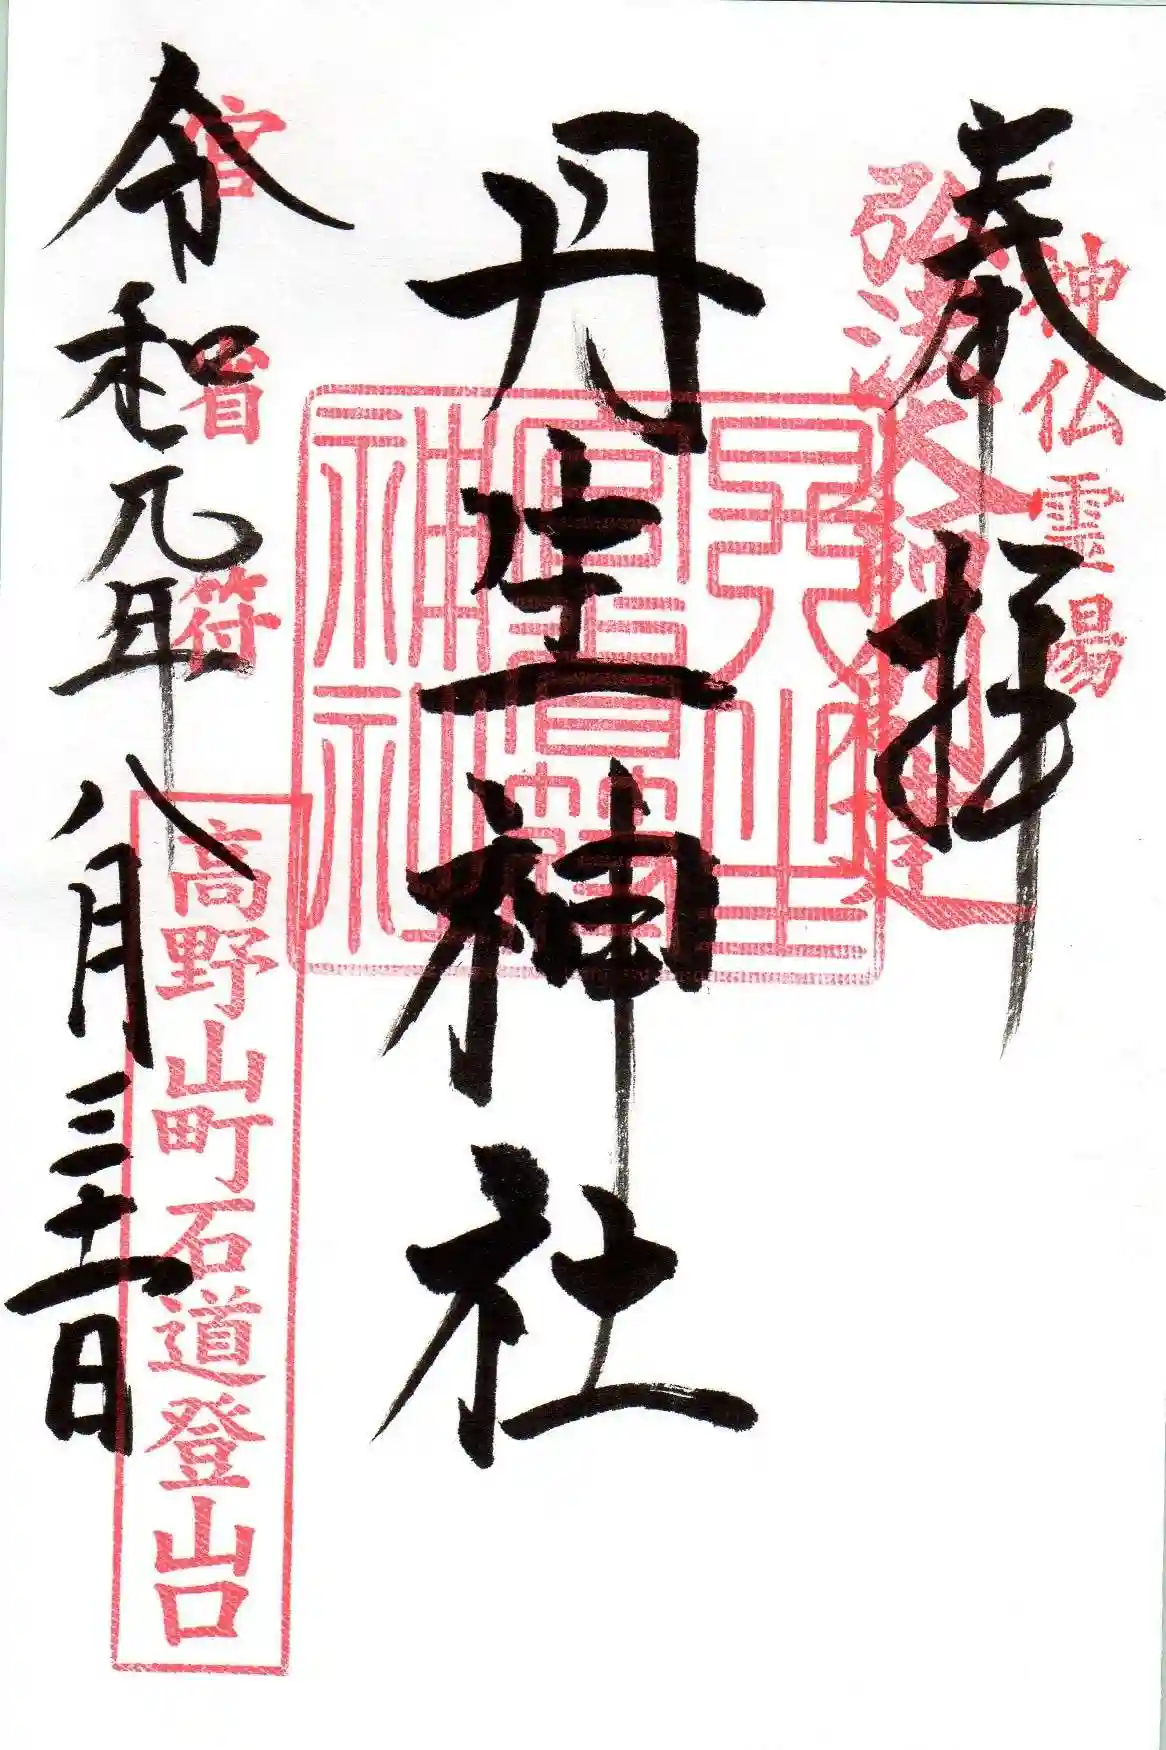 奉拝
神仏霊場
弘法大師創建
丹生神社
丹生官省符神社
官省符
令和元年八月三十一日
高野山町石道登山口